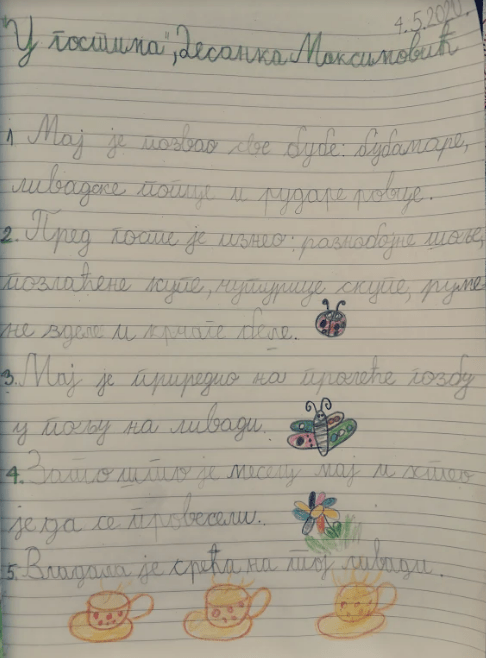 4.5.2020.
"У гостима", Десанка Максимовић
1. Мај је позвао све бубе: бубамаре,
ливадске попце и рударе ровце.
2. Пред госте је изнео: разнобојне шоље,
позлаћене купе, чутурице скупе, руме-
не зделе и крчаге беле.
3. Мај је приредио на пролеће гозбу
у пољу на ливади.
4. Зато што је месец мај и хтео
је да се провесели.
5. Владала је срећа на тој ливади.